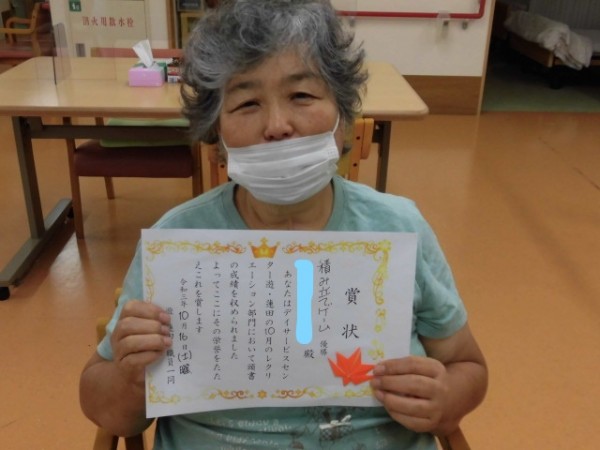 消火用散水栓
賞状
積み立てゲーム 優勝
殿
あなたはデイサービスセン
ター遊・蓮田の10月のレクリ
エーション部門において頭書
の成績を収められました
よってここにその栄誉をたた
えこれを賞します
令和三年10月16日(土)曜
職員一同